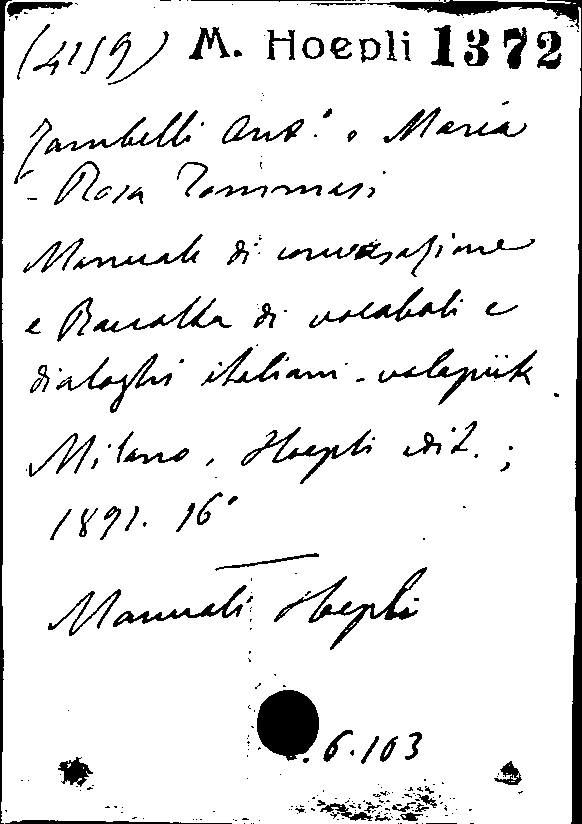 (4159) M. Hoepli 1372
Zambelli Ant.° e Maria
- Rosa Tommasi
Manuale di conversazione
e Raccolta di vocaboli e
dialoghi italiani - volapük.
Milano, Hoepli edit. ;
1891. 16°
Manuali Hoepli
.6.103